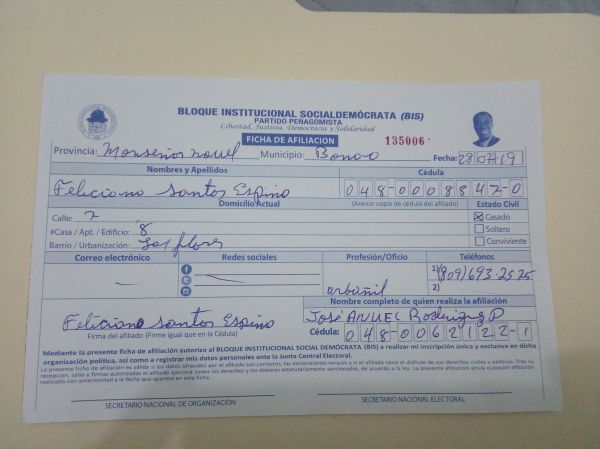 BLOQUE INSTITUCIONAL SOCIALDEMÓCRATA (BIS)
PARTIDO PEÑAGOMISTA
Libertad, Justicia, Democracia y Solidaridad
FICHA DE AFILIACION 135006
Provincia: Monseñor nouel Municipio: Bonao Fecha: 28/07/19
Nombres y Apellidos Cédula
Feliciano Santos Espino 048-0008842-0
Domicilio Actual (Anexar copia de cédula del afiliado) Estado Civil
Calle: 2 Casado
#Casa / Apt. / Edificio: 8 Soltero
Barrio / Urbanización: Las flores Conviviente
Correo electrónico Redes sociales Profesión/Oficio Teléfonos
1) (809) 693-2525
arbañil 2)
Nombre completo de quien realiza la afiliación
Feliciano Santos Espino José ANUEL Rodriguez P
Firma del afiliado (Firme igual que en la Cédula) Cédula: 048-0062122-1
Mediante la presente ficha de afiliación autorizo al BLOQUE INSTITUCIONAL SOCIAL DEMÓCRATA (BIS) a realizar mi inscripción única y exclusiva en dicha
organización política, así como a registrar mis datos personales ante la Junta Central Electoral.
La presente ficha de afiliación es válida si los datos ofrecidos por el afiliado son correctos, las declaraciones veraces y si el afiliado tiene el disfrute de sus derechos civiles y políticos. Tras su
recepción, sello y firmas autorizadas el afiliado ejercerá todos los derechos y los deberes estatutariamente sancionados, de acuerdo a la ley. La presente afiliación anula cualquier afiliación
realizada con anterioridad a la fecha que aparece en esta ficha.
SECRETARIO NACIONAL DE ORGANIZACIÓN SECRETARIO NACIONAL ELECTORAL